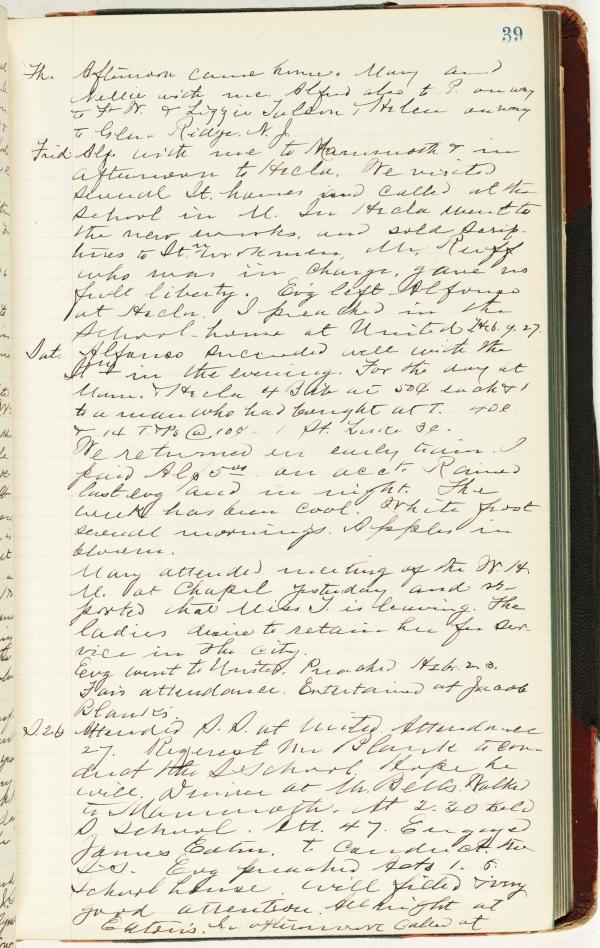 39
Th. Afternoon came home. Mary and
Nellie with me. Alfred also to P. on way
to Ft. W. & Lizzie Tulson & Helen on way
to Glen Ridge, N. J.
Frid Alf. with me to Mammoth & in
afternoon to Hecla. We visited
several It. homes and called at the
school in M. In Hecla went to
the new works, and sold Scrip-
tures to Itn workmen, Mr. Reuff
who was in charge, gave us
full liberty. Ev'g left Alfonso
at Hecla. I preached in the
School-house at United Heb. 9. 27.
Sat. Alfonso succeeded well with the
in the evening. For the day at
Mam. & Hecla 4 Bib at 50¢ each & 1
to a man who had bought at T. 40¢
& 14 T. @ 10¢ - 1 St. Luke 3¢.
We returned in early train. I
paid Alf 5 on acct. Rained
last evg and in night. The
week has been cool. White frost
several mornings. Apples in
bloom.
Mary attended meeting of the W. H.
M. at Chapel yesterday and re-
ported that Miss T. is leaving. The
ladies desire to retain her for ser-
vice in the city.
Evg went to United. Preached Heb. 2.3.
Fair attendance. Entertained at Jacob
Blank's
S. 26 Attended S. S. at United. Attendance
27. Request Mr Blank to con-
duct the S School. Hope he
will. Dinner at Mr. Bells. Walked
to Mammoth. At 2.30 held
S School. Att. 47. Engaged
James Eaton, to conduct the
S.S. Evg preached Acts 1. 8.
School house well filled & very
good attention. All night at
Eatons. In afternoon called at